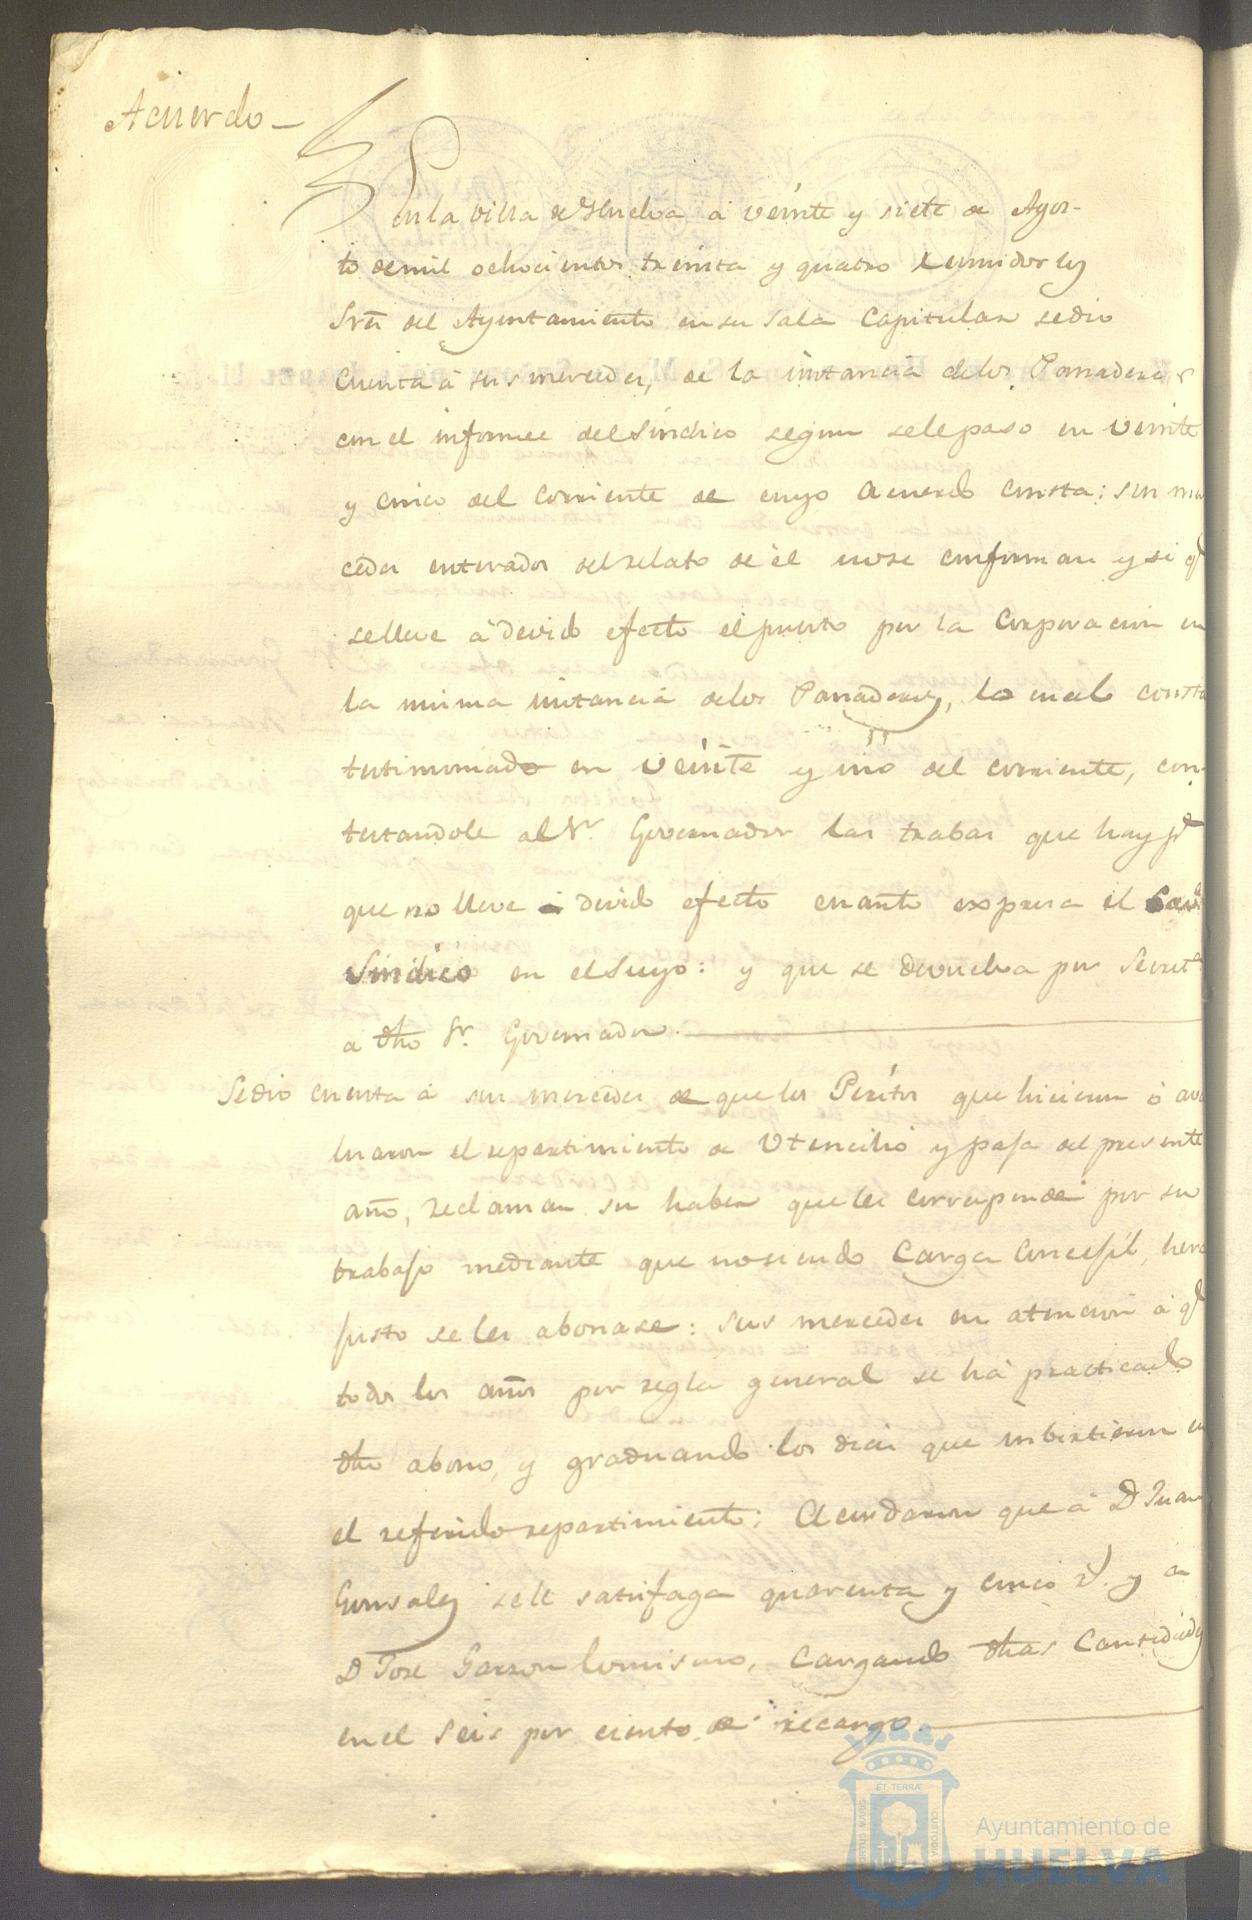 Acuerdo
En la villa de Huelva á veinte y siete de Agos-
to de mil ochocientos treinta y quatro reunidos los
Sres del Ayuntamiento en su Sala Capitular se dio
cuenta á sus mercedes, de la instancia de los Panaderos
con el informe del Síndico segun se le paso en veinte
y cinco del corriente de cuyo acuerdo consta: sus mer
cedes enterados del relato de él no se conforman y si q.e
se lleve á devido efecto el puesto por la Corporacion en
la misma instancia de los Panaderos, lo cual consta
testimoniado en veinte y uno del corriente, con-
testandole al Sr. Governador las trabas que hay p.a
que no lleve á devido efecto cuanto expresa el
Sindico en el suyo: y que se devuelva por Secret.a
a dho Sr. Governador.
Se dio cuenta á sus mercedes de que los Peritos que hicieron ó ava
luaron el repartimiento de Utencilio y paja del presente
año, reclaman su haber que les corresponde por su
trabajo mediante que no siendo Carga Concejil, hera
justo se les abonase: sus mercedes en atencion á q.e
todos los años por regla general se há practicado
dho abono, y graduando los dias que imbirtieron en
el referido repartimiento: Acordaron que á D. Juan
Gonsalez se le satisfaga quarenta y cinco r.s y á
D. Jose Garzon lo mismo, cargando dhas Cantidades
en el seis por ciento de recargo.
ET TERRA
Ayuntamiento de
HUELVA